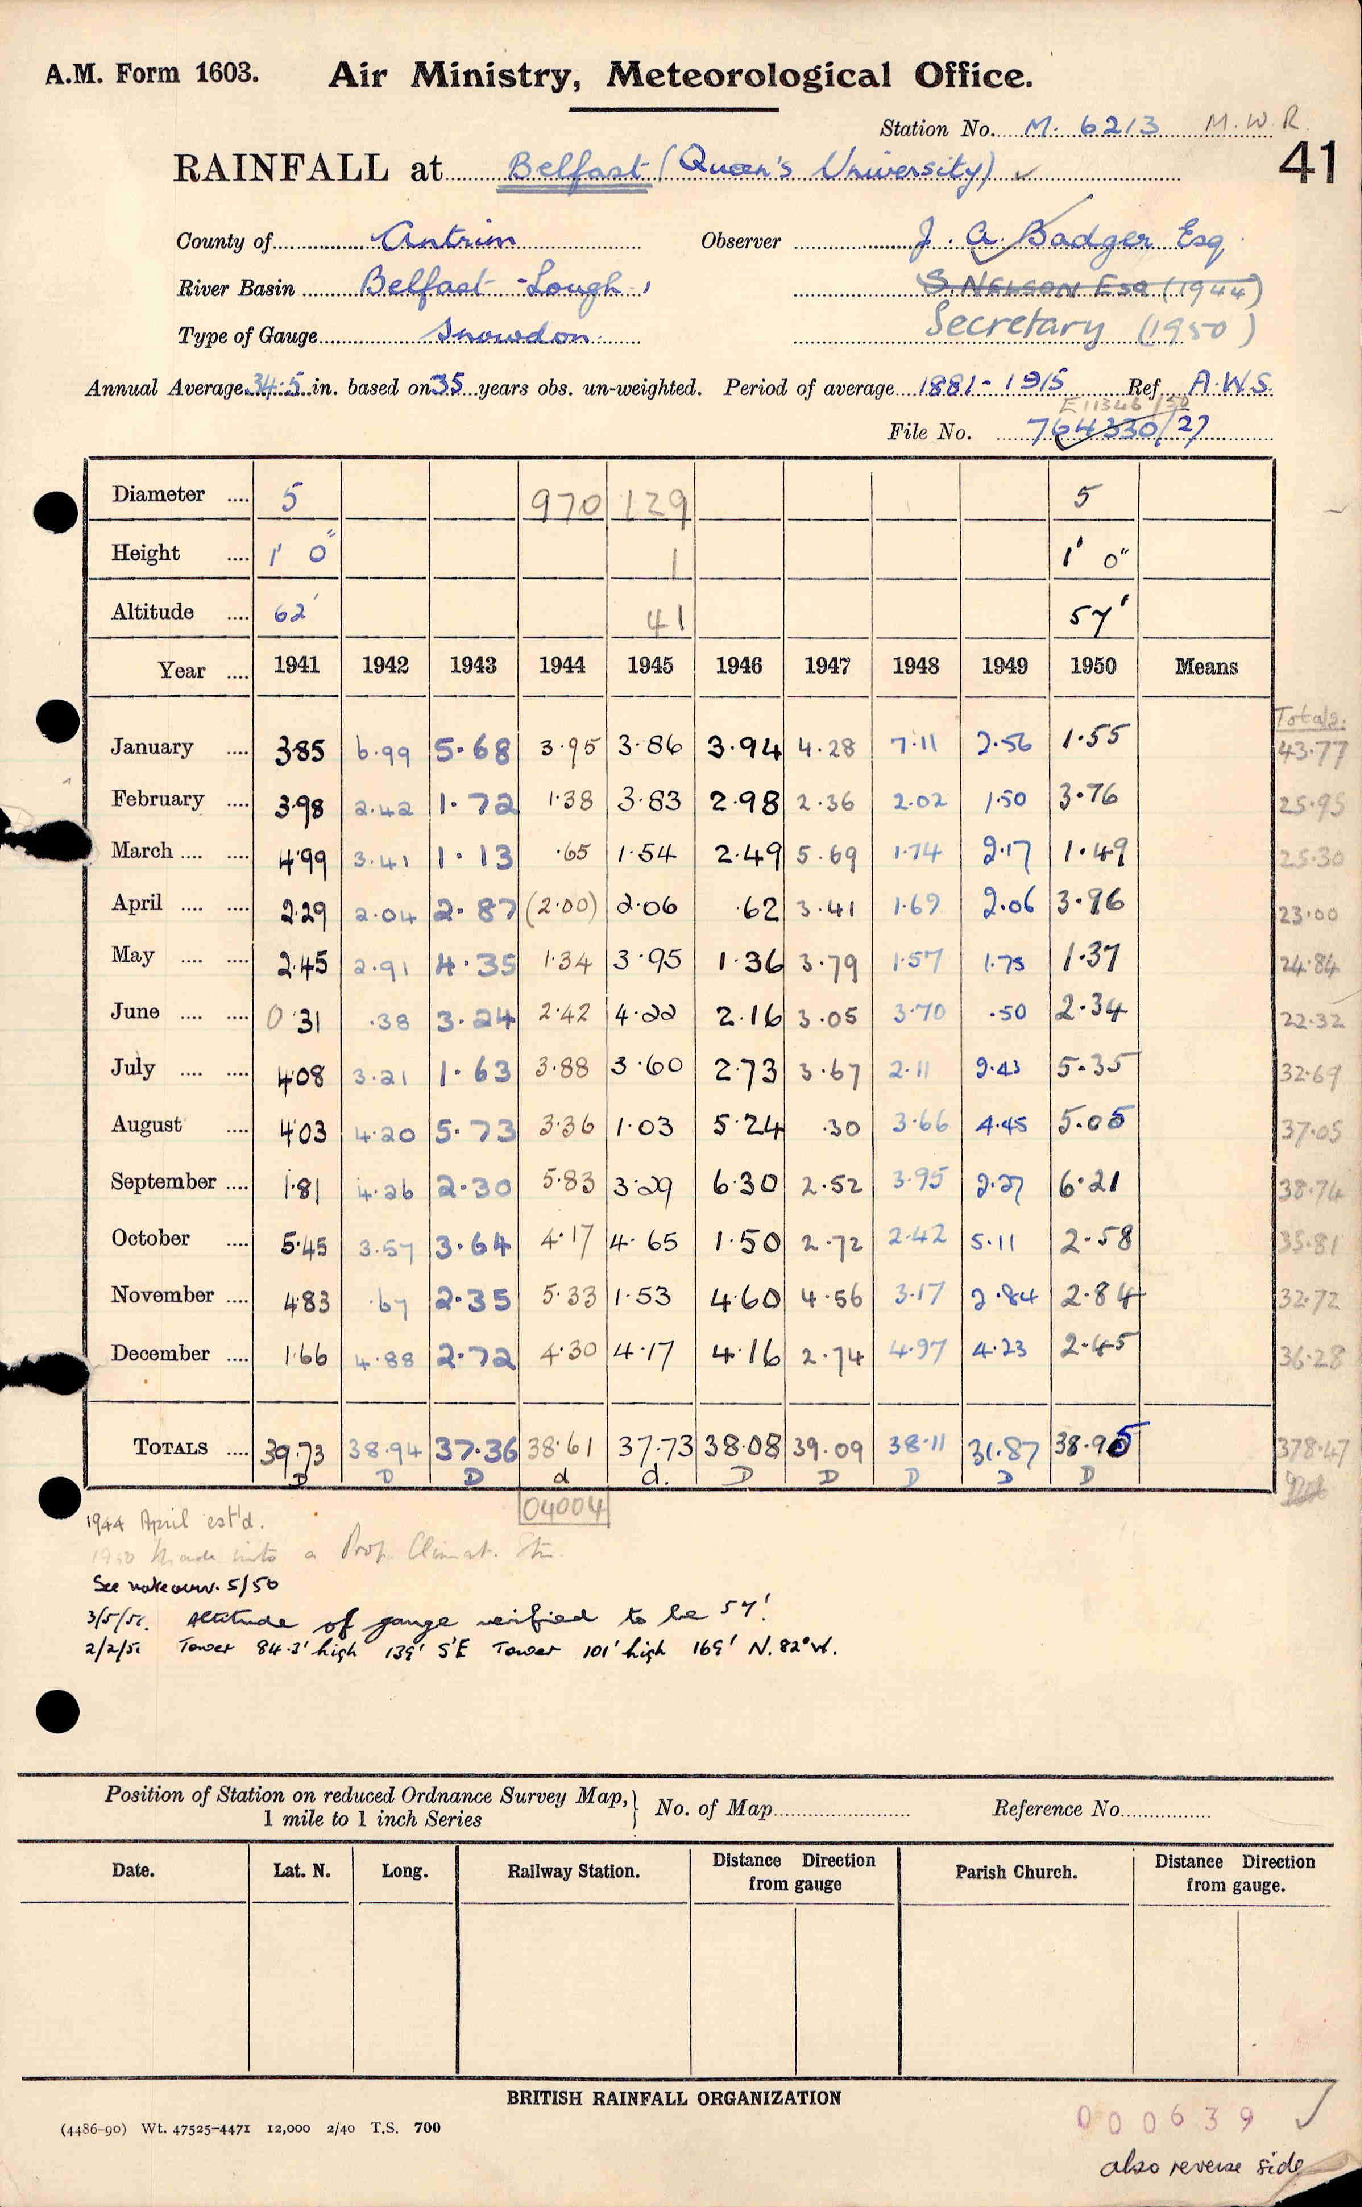 A.M. Form 1603. Air Ministry, Meteorological Office.
Station No. M. 6213 M.W.R.
RAINFALL at Belfast (Queen's University) ✓ 41
County of Antrim Observer J. A. Badger Esq
River Basin Belfast Lough S. NELSON ESQ (1944)
Type of Gauge Snowdon Secretary (1950)
Annual Average 34.5 in. based on 35 years obs. un-weighted. Period of average 1881-1915 Ref A.W.S.
E11346/50
File No. 764330/27
Diameter .... 5 970 129 5
Height .... 1' 0" 1 1' 0"
Altitude .... 62' 41 57'
Year .... 1941 1942 1943 1944 1945 1946 1947 1948 1949 1950 Means
Totals:
January .... 3.85 6.99 5.68 3.95 3.86 3.94 4.28 7.11 2.56 1.55 43.77
February .... 3.98 2.42 1.72 1.38 3.83 2.98 2.36 2.02 1.50 3.76 25.95
March .... .... 4.99 3.41 1.13 .65 1.54 2.49 5.69 1.74 2.17 1.49 25.30
April .... .... 2.29 2.04 2.87 (2.00) 2.06 .62 3.41 1.69 2.06 3.96 23.00
May .... .... 2.45 2.91 4.35 1.34 3.95 1.36 3.79 1.57 1.75 1.37 24.84
June .... .... 0.31 .38 3.24 2.42 4.22 2.16 3.05 3.70 .50 2.34 22.32
July .... .... 4.08 3.21 1.63 3.88 3.60 2.73 3.67 2.11 2.43 5.35 32.69
August .... 4.03 4.20 5.73 3.36 1.03 5.24 .30 3.66 4.45 5.05 37.05
September .... 1.81 4.26 2.30 5.83 3.29 6.30 2.52 3.95 2.27 6.21 38.74
October .... 5.45 3.57 3.64 4.17 4.65 1.50 2.72 2.42 5.11 2.58 35.81
November .... 4.83 .67 2.35 5.33 1.53 4.60 4.56 3.17 2.84 2.84 32.72
December .... 1.66 4.88 2.72 4.30 4.17 4.16 2.74 4.97 4.23 2.45 36.28
TOTALS .... 39.73 38.94 37.36 38.61 37.73 38.08 39.09 38.11 31.87 38.95 378.47
D D D d d. D D D D D
04004
1944 April est'd.
1950 Made into a Prop. Climat. Stn.
See note corr. 5/50
3/5/51. Altitude of gauge verified to be 57'.
2/2/51 Tower 84.3' high 139' S'E Tower 101' high 169' N. 82° W.
Position of Station on reduced Ordnance Survey Map, 1 mile to 1 inch Series No. of Map Reference No.
Date. Lat. N. Long. Railway Station. Distance Direction from gauge Parish Church. Distance Direction from gauge.
BRITISH RAINFALL ORGANIZATION
(4486-90) Wt. 47525-4471 12,000 2/40 T.S. 700
000639 ✓
also reverse side